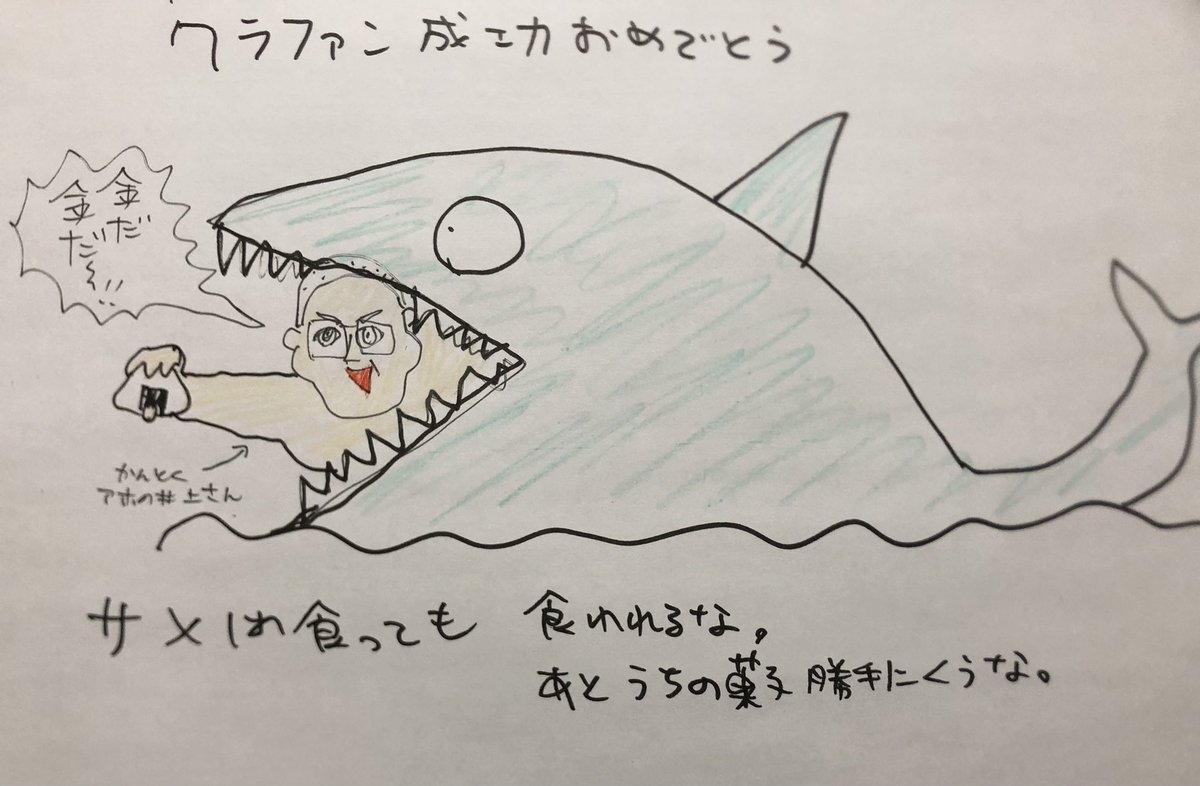 クラファン成功おめでとう
金だ
金だ〜!!
かんとく
アホの井土さん
サメは食っても 食われるな。
あとうちの菓子勝手にくうな。